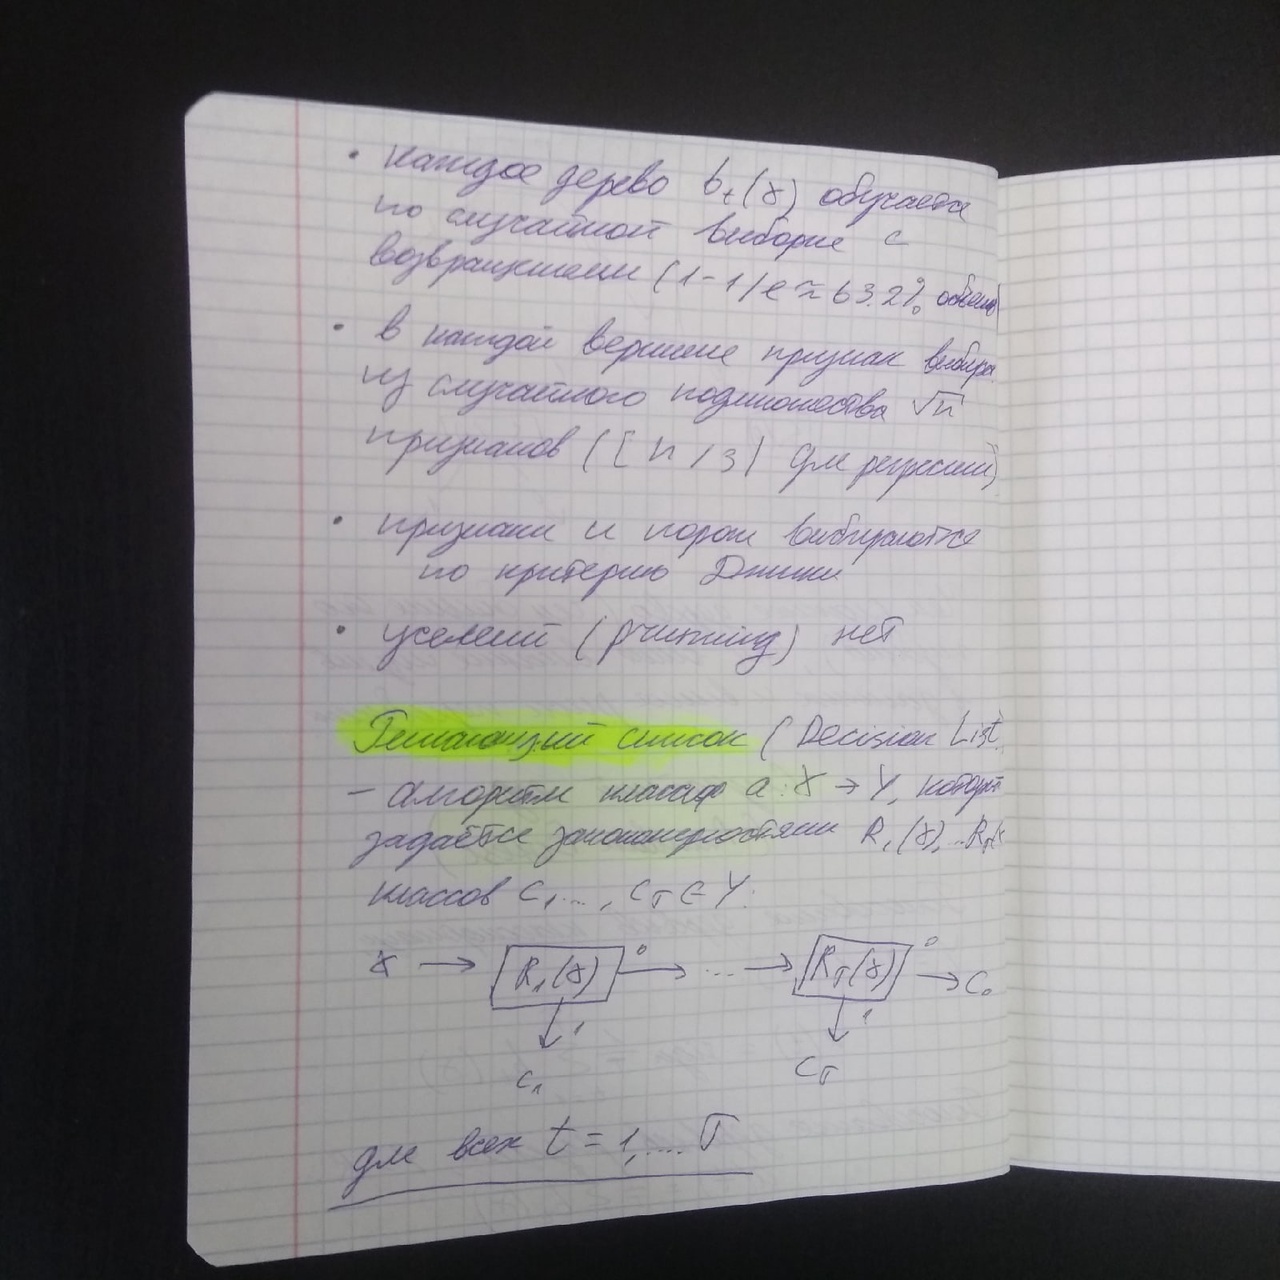 • каждое дерево b_t(x) обучается
по случайной выборке с
возвращением (1-1/e ≈ 63.2% объема
• в каждой вершине признак выбира
из случайного подмножества √n
признаков ([n/3] для регрессии)
• признаки и пороги выбираются
по критерию Джини
• усечений (prunning) нет
Решающий список (Decision List
- алгоритм классиф a: X → Y, которы
задаётся закономерностями R₁(x), ...R_T(x
классов C₁..., C_T ∈ Y:
x → R₁(x) 0 → ... → R_T(x) 0 → C₀
1 1
C₁ C_T
для всех t = 1,.... T